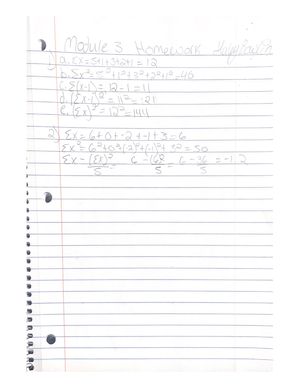 Module 3 Homework
1) a. Σx=5+1+3+2+1=12
b. Σx²=5²+1²+3²+2²+1²=40
c. Σ(x-1)=12-1=11
d. (Σx-1)²=11²=121
e. (Σx)²=12²=144
2) Σx=6+0+-2+-1+3=6
Σx²=6²+0+(-2)²+(-1)²+3²=50
Σx-(Σx)²/5 6-(6)²/5= 6-36/5 =-1.2